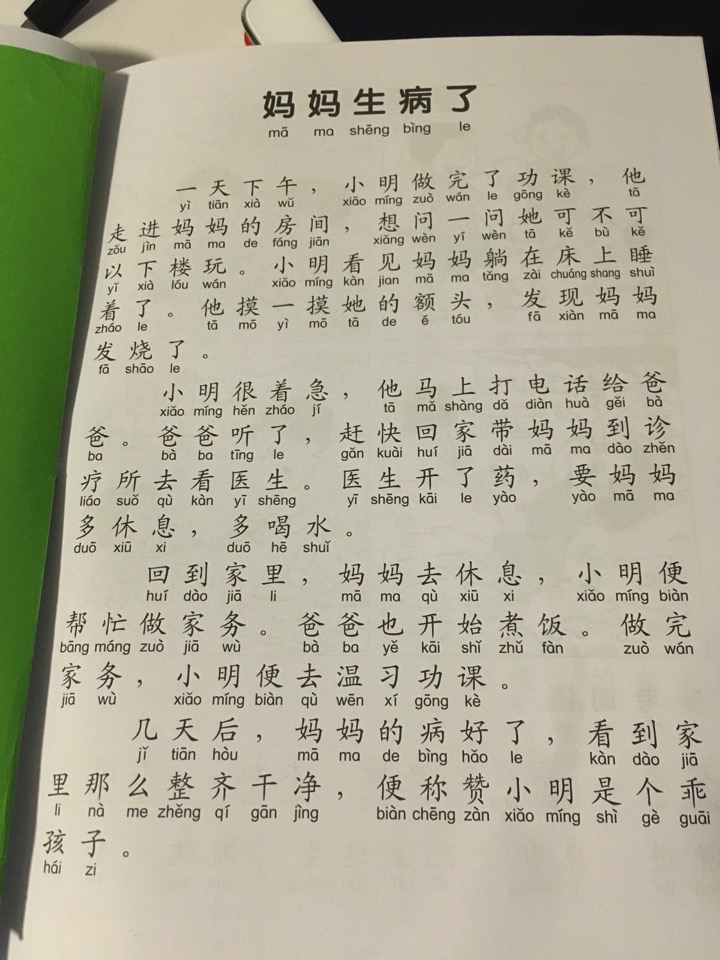 妈妈生病了
mā ma shēng bìng le
一天下午，小明做完了功课，他
yì tiān xià wǔ xiǎo míng zuò wán le gōng kè tā
走进妈妈的房间，想问一问她可不可
zǒu jìn mā ma de fáng jiān xiǎng wèn yí wèn tā kě bù kě
以下楼玩。小明看见妈妈躺在床上睡
yǐ xià lóu wán xiǎo míng kàn jian mā ma tǎng zài chuáng shang shuì
着了。他摸一摸她的额头，发现妈妈
zháo le tā mō yì mō tā de é tóu fā xiàn mā ma
发烧了。
fā shāo le
小明很着急，他马上打电话给爸
xiǎo míng hěn zháo jí tā mǎ shàng dǎ diàn huà gěi bà
爸。爸爸听了，赶快回家带妈妈到诊
ba bà ba tīng le gǎn kuài huí jiā dài mā ma dào zhěn
疗所去看医生。医生开了药，要妈妈
liáo suǒ qù kàn yī shēng yī shēng kāi le yào yào mā ma
多休息，多喝水。
duō xiū xi duō hē shuǐ
回到家里，妈妈去休息，小明便
huí dào jiā li mā ma qù xiū xi xiǎo míng biàn
帮忙做家务。爸爸也开始煮饭。做完
bāng máng zuò jiā wù bà ba yě kāi shǐ zhǔ fàn zuò wán
家务，小明便去温习功课。
jiā wù xiǎo míng biàn qù wēn xí gōng kè
几天后，妈妈的病好了，看到家
jǐ tiān hòu mā ma de bìng hǎo le kàn dào jiā
里那么整齐干净，便称赞小明是个乖
li nà me zhěng qí gān jìng biàn chēng zàn xiǎo míng shì gè guāi
孩子。
hái zi